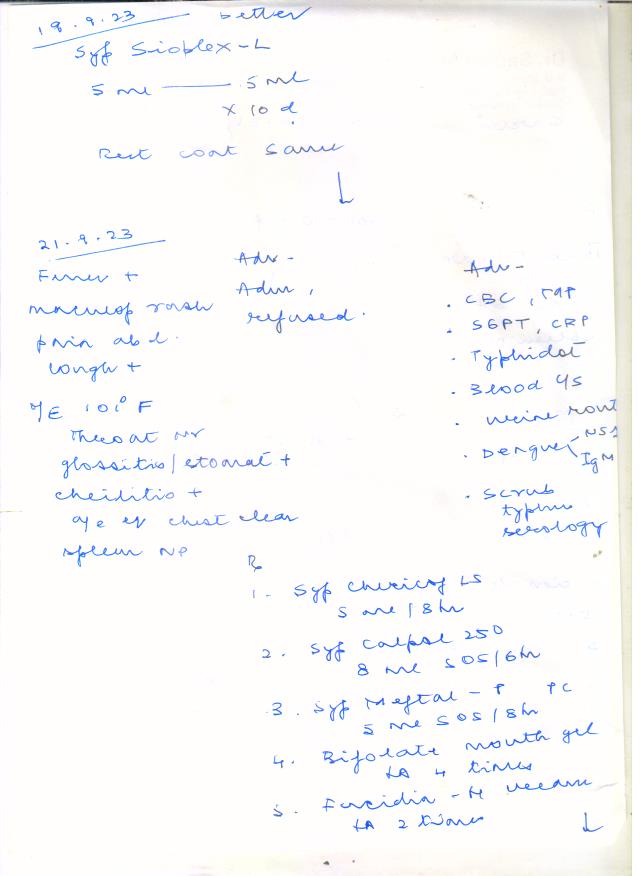 18.9.23 better
Syp Sioplex-L
5 ml — 5 ml
x 10 d
Rest cont same
↓
21.9.23
Fever +
maculop rash
pain abd.
cough +
O/E 101° F
Throat NR
glossitis / stomat +
cheilitis +
chest clear
spleen NP
Adv -
Adm,
refused.
Adv -
. CBC,
. SGPT, CRP
. Typhidot
. Blood c/s
. urine rout
. Dengue NS1
IgM
. scrub
typhus
serology
Rx
1. Syp Chericof LS
5 ml / 8 hr
2. Syp Calpol 250
8 ml SOS / 6 hr
3. Syp Meftal - P PC
5 ml SOS / 8 hr
4. Bifolate mouth gel
LA 4 times
5. Fucidin - H cream
LA 2 times
↓